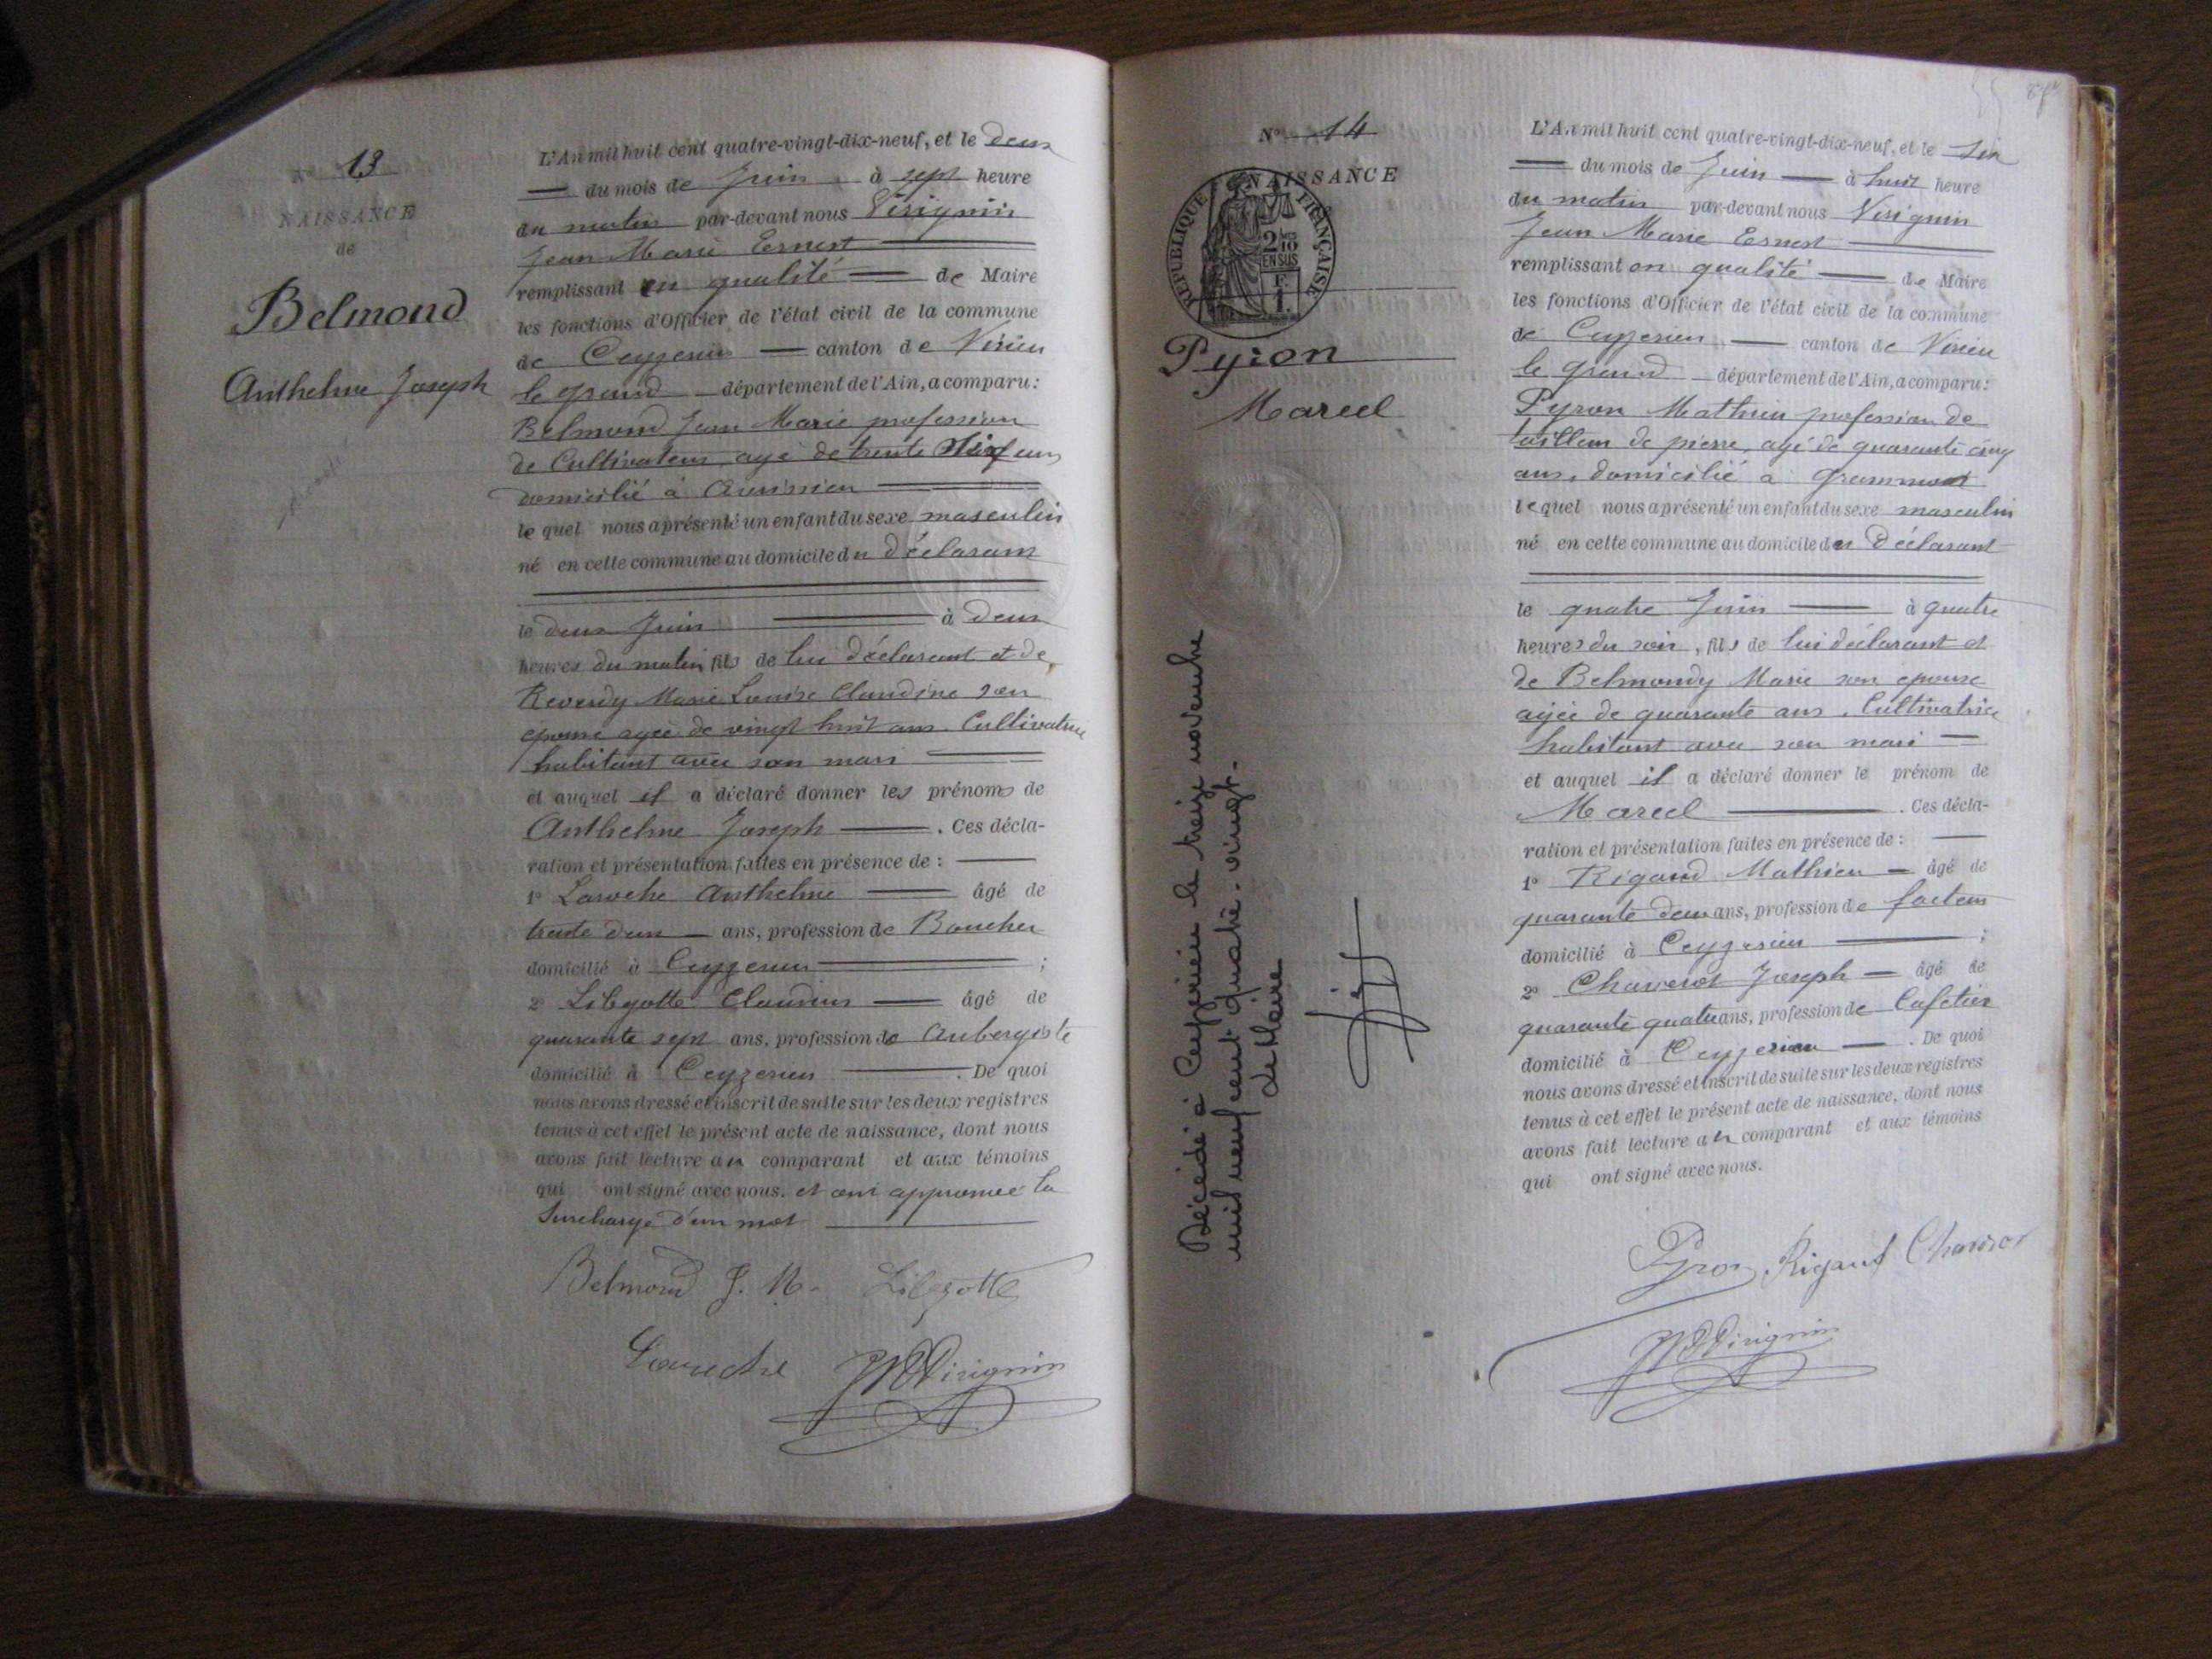 N° 13
NAISSANCE
de
Belmond
Anthelme Joseph
L'An mil huit cent quatre-vingt-dix-neuf, et le deux
du mois de Juin à sept heure
du matin par-devant nous Virignin
Jean Marie Ernest
remplissant en qualité de Maire
les fonctions d'Officier de l'état civil de la commune
de Ceyzerieu canton de Virieu
le grand département de l'Ain, a comparu:
Belmond Jean Marie profession
de Cultivateur, agé de trente ans
domicilié à Avrissieu
le quel nous a présenté un enfant du sexe masculin
né en cette commune au domicile du déclarant
le deux Juin à deux
heures du matin fils de lui déclarant et de
Reverdy Marie Louise Claudine son
épouse agée de vingt huit ans. Cultivatrice
habitant avec son mari
et auquel il a déclaré donner les prénoms de
Anthelme Joseph. Ces décla-
ration et présentation faites en présence de :
1° Laroche Anthelme âgé de
trente deux ans, profession de Boucher
domicilié à Ceyzerieu ;
2° Claudius âgé de
quarante sept ans, profession de Aubergiste
domicilié à Ceyzerieu. De quoi
nous avons dressé et inscrit de suite sur les deux registres
tenus à cet effet le présent acte de naissance, dont nous
avons fait lecture au comparant et aux témoins
qui ont signé avec nous. et ont approuvé la
Surcharge d'un mot
Belmond J. M.
Laroche Virignin
N° 14
NAISSANCE
RÉPUBLIQUE FRANÇAISE
2/10
EN SUS
F.
1.
Pyron
Marcel
Décédé à Ceyzérieu le treize novembre
mil neuf cent quatre-vingt-
Le Maire
L'An mil huit cent quatre-vingt-dix-neuf, et le six
du mois de Juin à huit heure
du matin par-devant nous Virignin
Jean Marie Ernest
remplissant en qualité de Maire
les fonctions d'Officier de l'état civil de la commune
de Ceyzerieu canton de Virieu
le grand département de l'Ain, a comparu:
Pyron Mathieu profession de
tailleur de pierre, agé de quarante cinq
ans, domicilié à Grammont
le quel nous a présenté un enfant du sexe masculin
né en cette commune au domicile du Déclarant
le quatre Juin à quatre
heures du soir, fils de lui déclarant et
de Belmondy Marie son epouse
agée de quarante ans. Cultivatrice
habitant avec son mari
et auquel il a déclaré donner le prénom de
Marcel. Ces décla-
ration et présentation faites en présence de :
1° Rigaud Mathieu âgé de
quarante deux ans, profession de facteur
domicilié à Ceyzerieu ;
2° Joseph âgé de
quarante quatre ans, profession de Cafetier
domicilié à Ceyzerieu. De quoi
nous avons dressé et inscrit de suite sur les deux registres
tenus à cet effet le présent acte de naissance, dont nous
avons fait lecture au comparant et aux témoins
qui ont signé avec nous.
Pyron Rigaud
Virignin